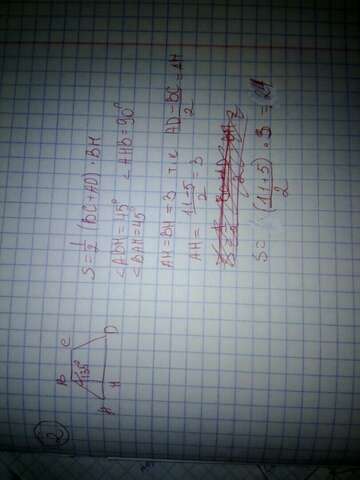 2
B C
135°
A H D
S = 1/2 (BC + AD) · BH
<ABH = 45° <AHB = 90°
<BAH = 45°
AH = BH = 3 т.к (AD - BC)/2 = AH
AH = (11 - 5)/2 = 3
S = (11 + 5)/2 · 3 = 24